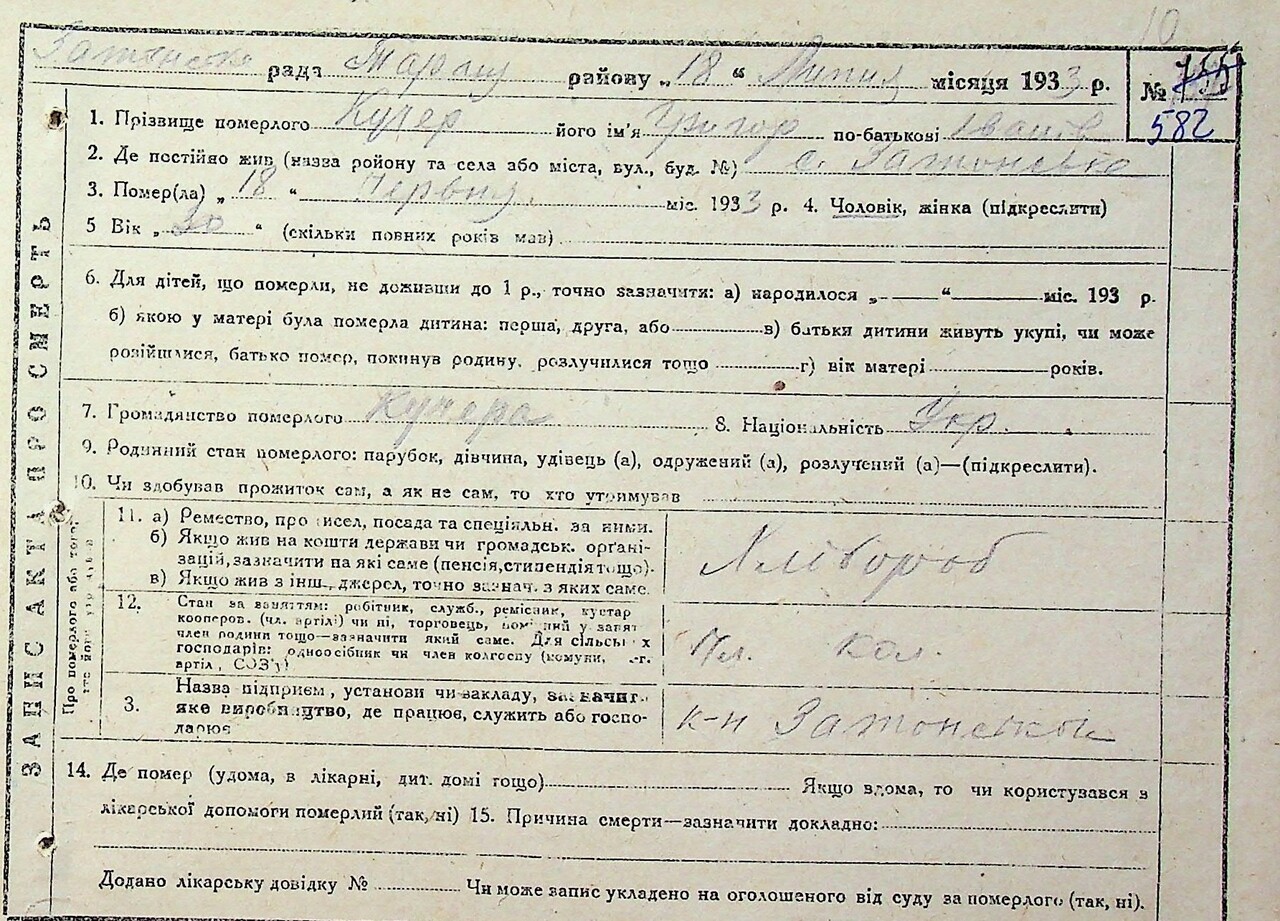 10
Затонська рада Таращ району „18“ Липня місяця 1933 р.
№ 755
582
ЗАПИС АКТА ПРО СМЕРТЬ
1. Прізвище померлого Кучер його ім'я Григор по-батькові Іванів
2. Де постійно жив (назва ройону та села або міста, вул., буд. №) с. Затонсько
3. Помер(ла) „18“ Червня міс. 1933 р. 4. Чоловік, жінка (підкреслити)
5 Вік „30“ (скільки повних років мав)
6. Для дітей, що померли, не доживши до 1 р., точно зазначити: а) народилося „—“ міс. 193 р.
б) якою у матері була померла дитина: перша, друга, або в) батьки дитини живуть укупі, чи може
розійшлися, батько помер, покинув родину, розлучилися тощо г) вік матері років.
7. Громадянство померлого Кучера 8. Національність Укр.
9. Родинний стан померлого: парубок, дівчина, удівець (а), одружений (а), розлучений (а)—(підкреслити).
10. Чи здобував прожиток сам, а як не сам, то хто утримував
Про померлого або того,
11. а) Ремество, промисел, посада та спеціяльн. за ними.
б) Якщо жив на кошти держави чи громадськ. орґані-
зацій, зазначити на які саме (пенсія, стипендія тощо).
в) Якщо жив з інш. джерел, точно зазнач. з яких саме.
Хлібороб
12. Стан за заняттям: робітник, служб., ремісник, кустар
кооперов. (чл. артілі) чи ні, торговець, у занят
член родини тощо—зазначити який саме. Для сільських
господарів: одноосібник чи член колгоспу (комуни, с.-г.
артіл., СОЗ'у)
Чл. кол.
3. Назва підприєм., установи чи закладу, зазначит.
яке виробництво, де працює, служить або госпо-
дарює
к-п Затонський
14. Де помер (удома, в лікарні, дит. домі тощо) Якщо вдома, то чи користувався з
лікарської допомоги померлий (так, ні) 15. Причина смерти—зазначити докладно:
Додано лікарську довідку № Чи може запис укладено на оголошеного від суду за померлого (так, ні).